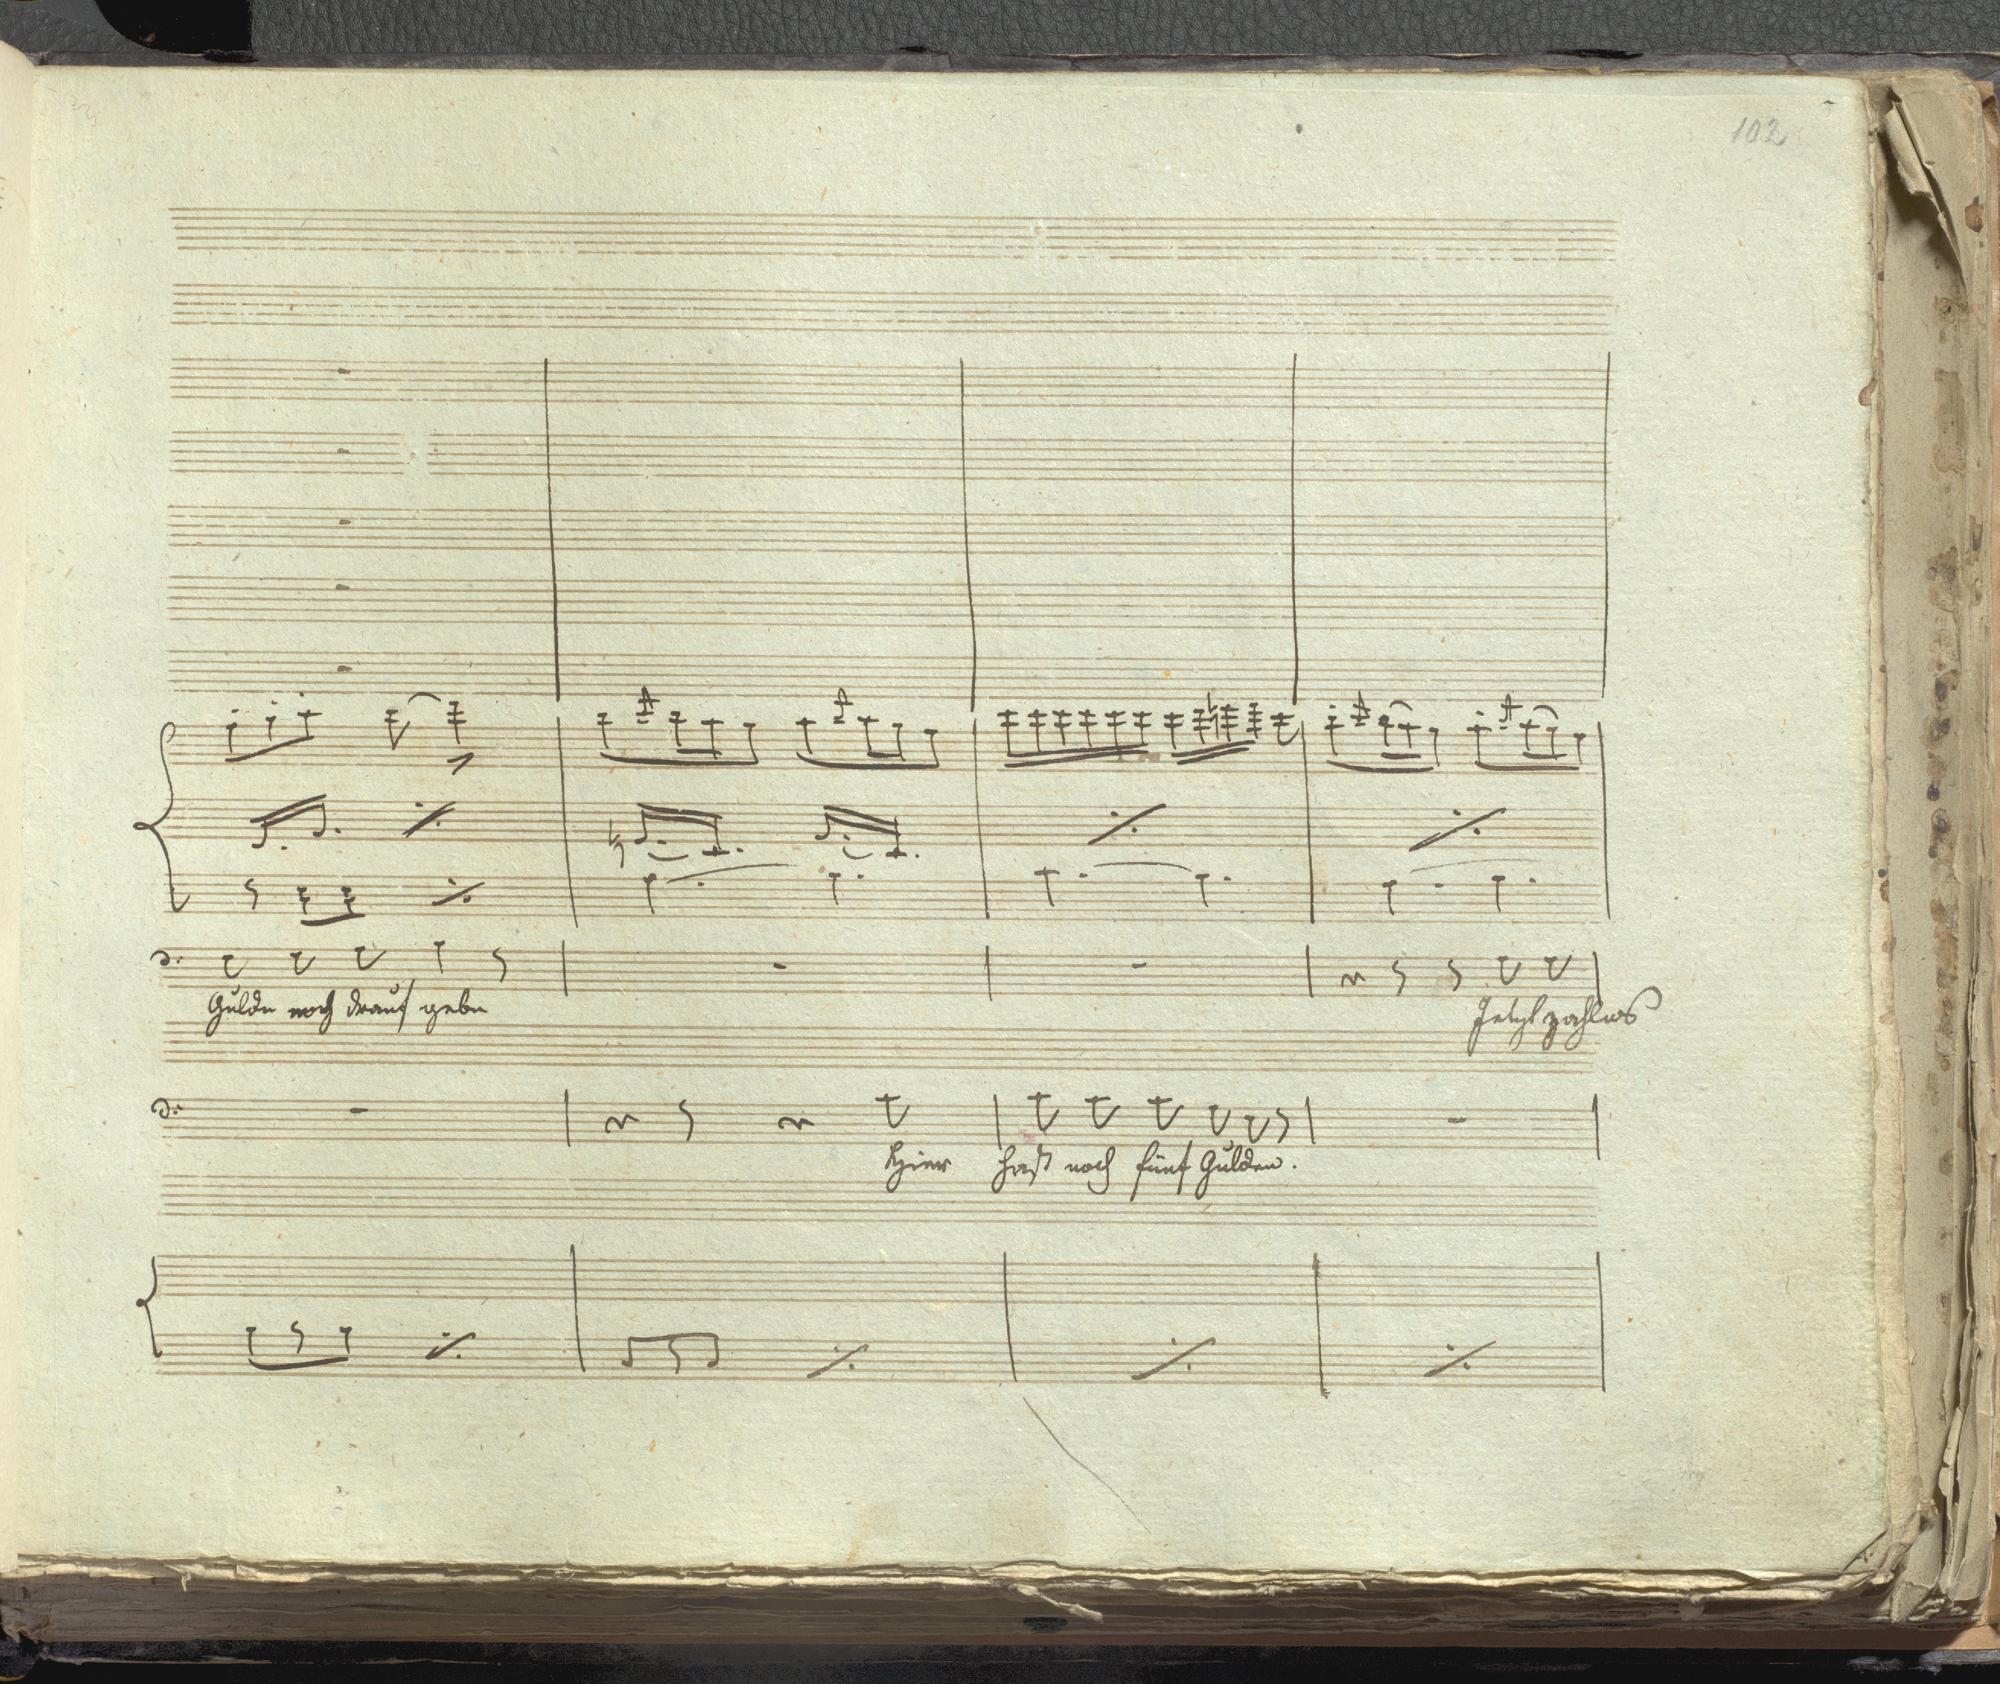 102
Gulde noch drauf gebn
Jetzt zahl
Hier hast noch fünf Gulden.